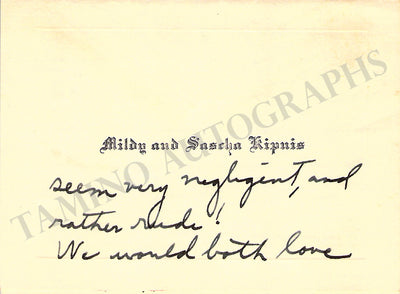 Mildy and Sascha Kipnis
seem very negligent, and
rather rude!
We would both love
TAMINO AUTOGRAPHS